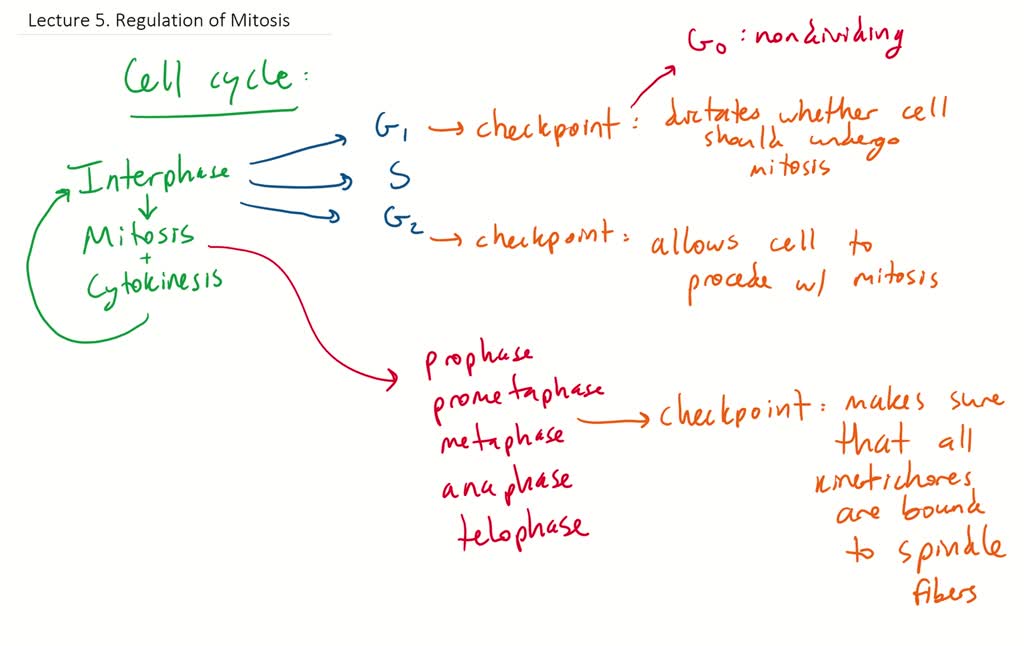 Lecture 5. Regulation of Mitosis
Cell cycle:
G0 : nondividing
G1 → checkpoint : dictates whether cell
should undergo
mitosis
Interphase
S
G2 → checkpoint : allows cell to
procede w/ mitosis
↓
Mitosis
+
Cytokinesis
prophase
prometaphase
metaphase
anaphase
telophase
checkpoint : makes sure
that all
kinetichores
are bound
to spindle
fibers